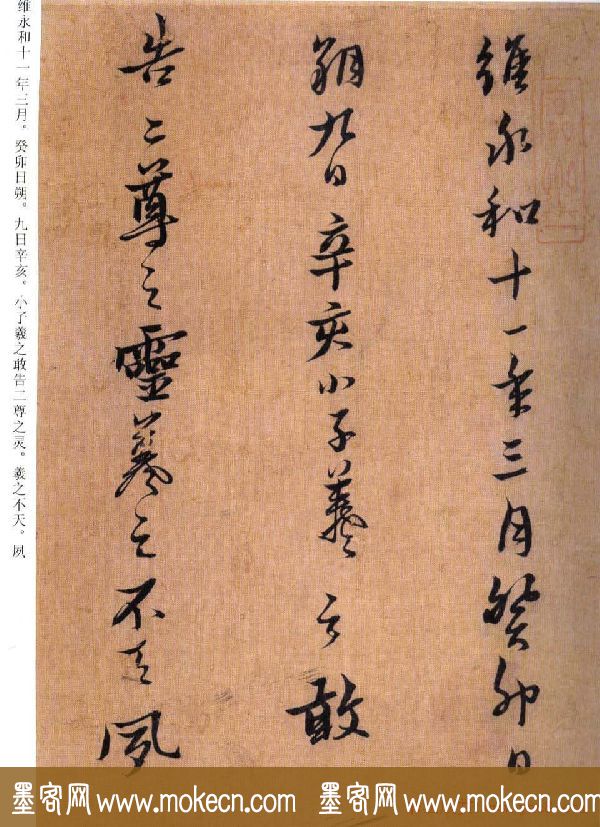 維永和十一年三月癸卯日
朔九日辛亥小子羲之敢
告二尊之靈羲之不天夙
维永和十一年三月。癸卯日朔。九日辛亥。小子羲之敢告二尊之灵。羲之不天。夙
墨客网 www.mokecn.com 墨客网 www.mokecn.com